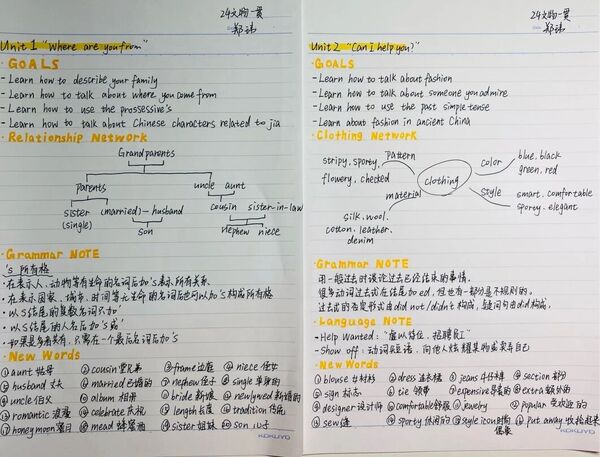 24文物一贯
郑玮
Unit 1 "Where are you from"
·GOALS
- Learn how to describe your family
- Learn how to talk about where you come from
- Learn how to use the prossessive's
- Learn how to talk about Chinese characters related to jia
·Relationship Network
Grandparents
parents uncle aunt
sister (married)-husband cousin sister-in-law
(single) son nephew niece
·Grammar NOTE
's 所有格
·在表示人、动物等有生命的名词后加's表示所有关系
·在表示国家、城市、时间等无生命的名词后也可以加's构成所有格
·以s结尾的复数名词只加'
·以s结尾的人名后加's或'
·如果是多者共有，只需在一个最后名词后加's
·New Words
①aunt 姑母 ②cousin 堂兄弟 ③frame 边框 ④niece 侄女
⑤husband 丈夫 ⑥married 已婚的 ⑦nephew 侄子 ⑧single 单身的
⑨uncle 伯父 ⑩album 相册 ⑪bride 新娘 ⑫newlywed 新婚的
⑬romantic 浪漫 ⑭celebrate 庆祝 ⑮length 长度 ⑯tradition 传统
⑰honeymoon 蜜月 ⑱mead 蜂蜜酒 ⑲sister 姐妹 ⑳son 儿子
KOKUYO
24文物一贯
郑玮
Unit 2 "Can I help you?"
·GOALS
- Learn how to talk about fashion
- Learn how to talk about someone you admire
- Learn how to use the past simple tense
- Learn about fashion in ancient China
·Clothing Network
stripy, sporty, pattern
flowery, checked
material
silk, wool,
cotton, leather,
denim
clothing
color blue, black
green, red
style smart, comfortable
sporty, elegant
·Grammar NOTE
用一般过去时谈论过去已经结束的事情。
很多动词过去式在结尾加ed，但也有一部分是不规则的。
过去式的否定形式由did not/didn't构成，疑问句由did构成。
·Language NOTE
- Help Wanted："虚以待位，招聘员工"
- Show off：动词短语，向他人炫耀某物或卖弄自己
·New Words
①blouse 女衬衫 ②dress 连衣裙 ③jeans 牛仔裤 ④section 部分
⑤sign 标志 ⑥tie 领带 ⑦expensive 昂贵的 ⑧extra 额外的
⑨designer 设计师 ⑩comfortable 舒服 ⑪jewelry ⑫popular 受欢迎的
⑬sew 缝 ⑭sporty 休闲的 ⑮style icon 时尚偶像 ⑯put away 收拾起来
KOKUYO